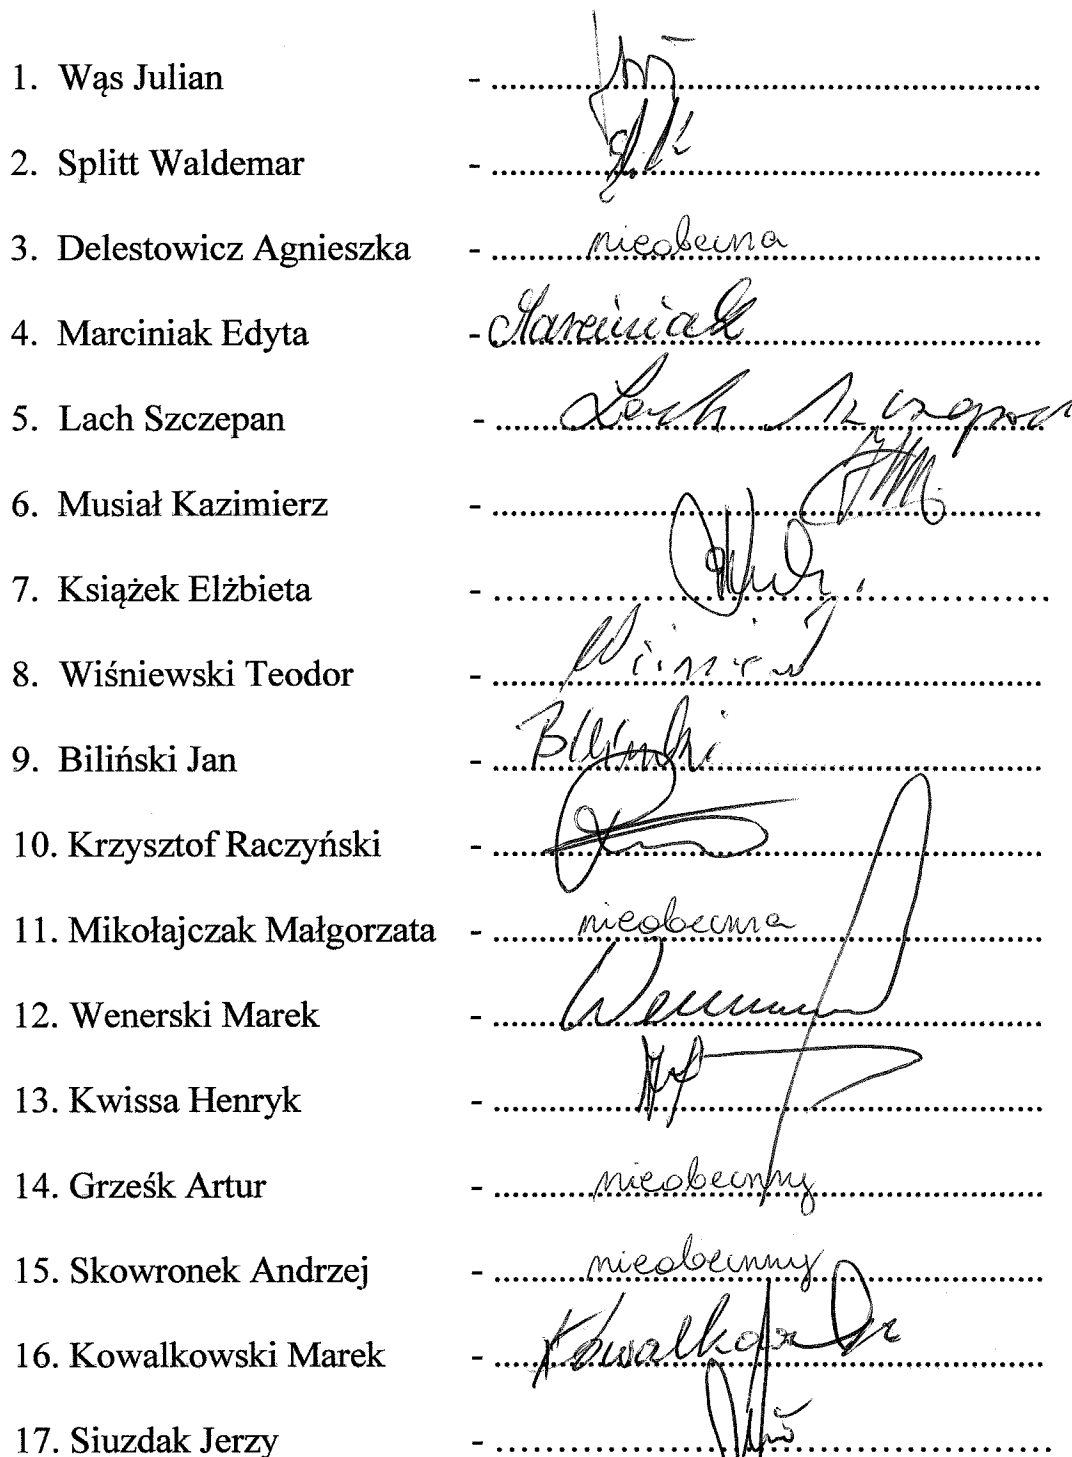 1. Wąs Julian - ..........
2. Splitt Waldemar - ..........
3. Delestowicz Agnieszka - nieobecna
4. Marciniak Edyta - Marciniak
5. Lach Szczepan - Lach Szczepan
6. Musiał Kazimierz - ..........
7. Książek Elżbieta - ..........
8. Wiśniewski Teodor - ..........
9. Biliński Jan - Biliński
10. Krzysztof Raczyński - ..........
11. Mikołajczak Małgorzata - nieobecna
12. Wenerski Marek - ..........
13. Kwissa Henryk - ..........
14. Grześk Artur - nieobecny
15. Skowronek Andrzej - nieobecny
16. Kowalkowski Marek - ..........
17. Siuzdak Jerzy - ..........